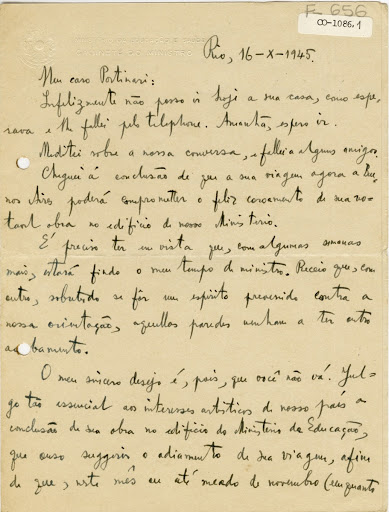 F- 656
CO-1086.1
Rio, 16-X-1945.
Meu caro Portinari:
Infelizmente não posso ir hoje a sua casa, como espe-
rava e lhe fallei pelo telephone. Amanhã, espero ir.
Meditei sobre a nossa conversa, e fallei a alguns amigos.
Cheguei á conclusão de que a sua viagem agora a Bue-
nos Aires poderá comprometter o feliz coroamento de sua no-
tavel obra no edificio do nosso Ministerio.
É preciso ter em vista que, com algumas semanas
mais, estará findo o meu tempo de ministro. Receio que, com
outro, sobretudo se fôr um espirito prevenido contra a
nossa orientação, aquellas paredes venham a ter outro
acabamento.
O meu sincero desejo é, pois, que você não vá. Jul-
go tão essencial aos interesses artisticos de nosso país a
conclusão de sua obra no edificio do Ministerio da Educação,
que ouso suggerir o adiamento de sua viagem, afim
de que, neste mês ou até meado de novembro (emquanto